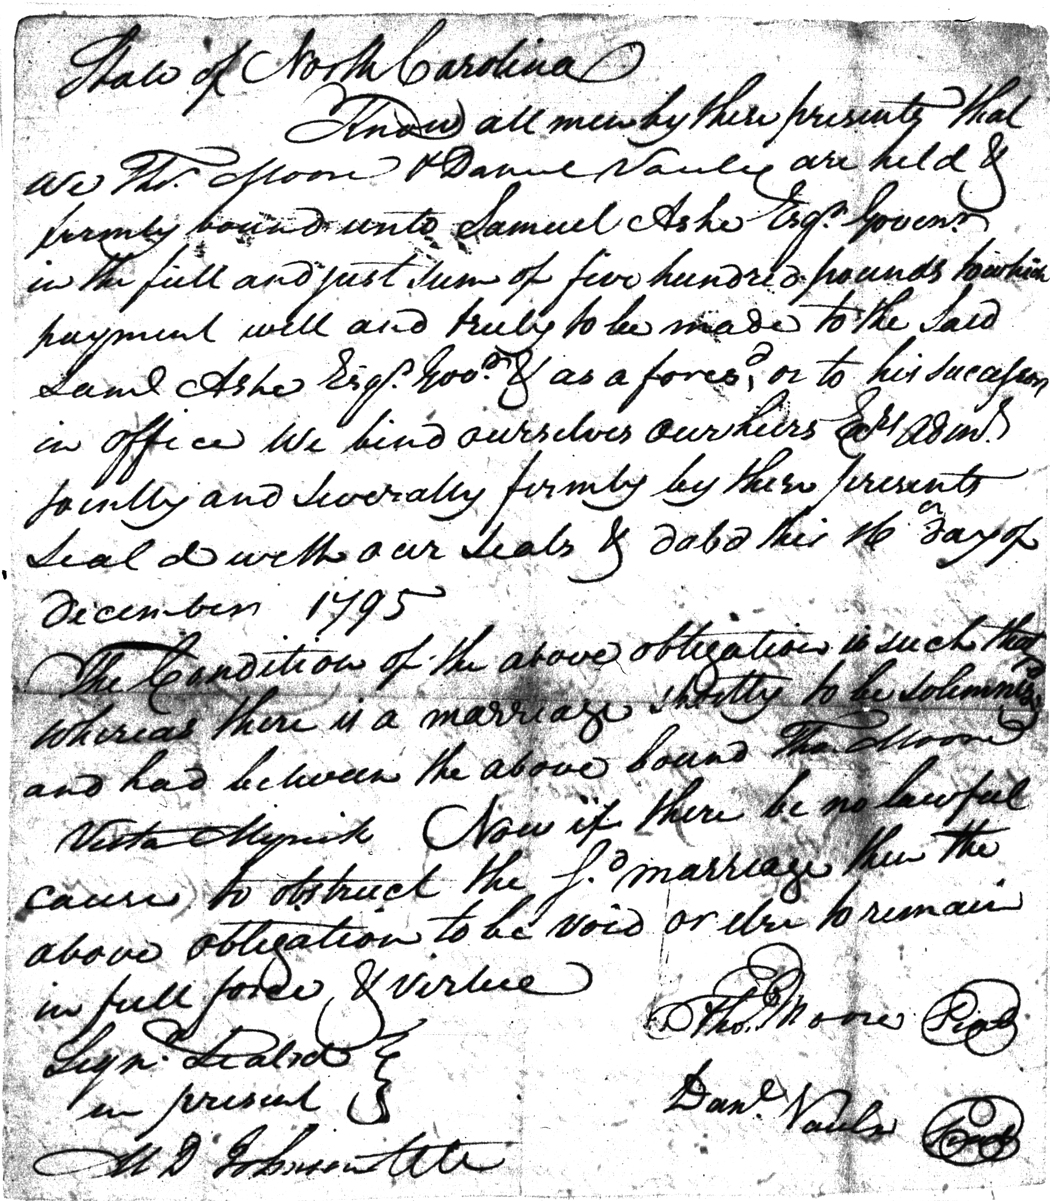 State of North Carolina
Know all men by these presents that
We Tho. Moore & Daniel Vaulx are held &
firmly bound unto Samuel Ashe Esqr. Govenr.
in the full and just sum of five hundred pounds to which
payment well and truly to be made to the said
Saml Ashe Esqr. Govr. & as afores'd, or to his successors
in office We bind ourselves our heirs Exrs Adms.
jointly and severally firmly by these presents
Seald with our Seals & datd this 16 day of
December 1795
The Condition of the above obligation is such that
whereas there is a marriage shortly to be solemnizd
and had between the above bound Tho Moore
Now if there be no lawful
cause to obstruct the sd. marriage then the
above obligation to be void or else to remain
in full force & virtue
Sign'd Sealed
in present
Tho. Moore Seal
Danl. Vaulx Seal
M D Johnson